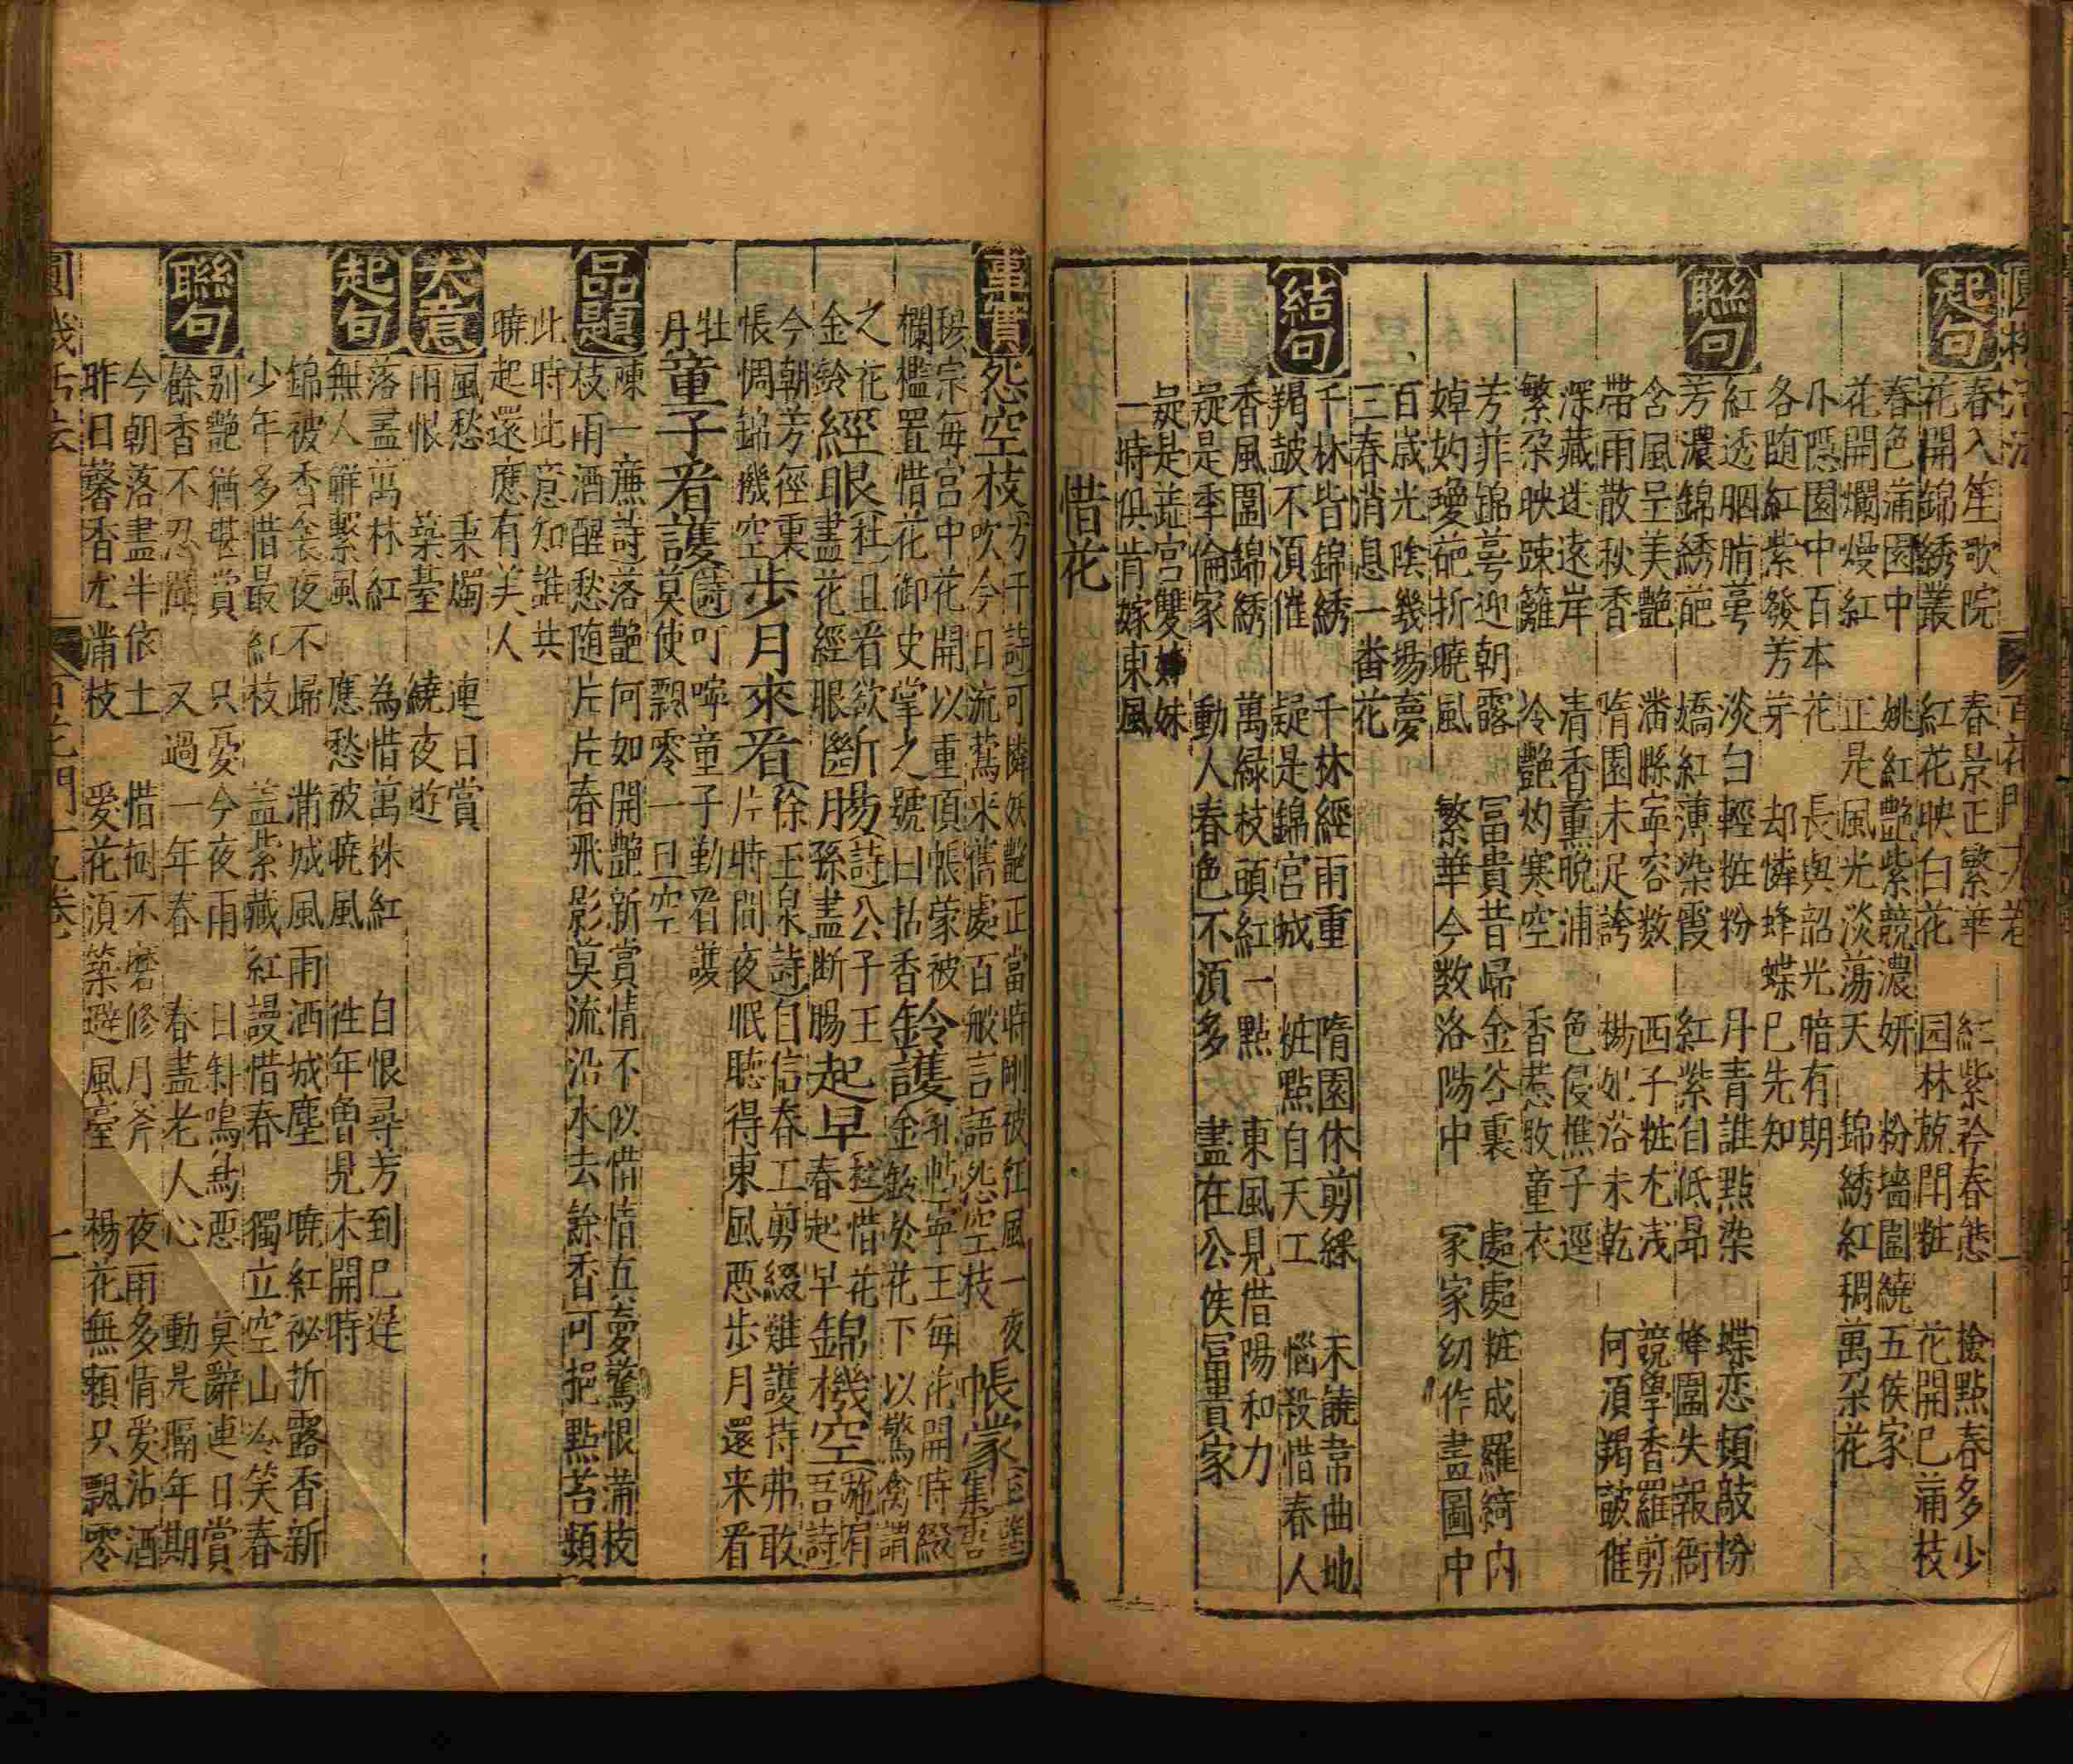 圓機活法 百花門十九卷 一
起句 春入笙歌院 春景正繁華 紅紫矜春態 撿點春多少
花開錦綉叢 紅花映白花 园林競閙粧 花開巳蒲枝
春色蒲園中 姚紅艶紫競濃妍 粉墻圍繞五侯家
花開爛熳紅 正是風光淡蕩天 錦綉紅稠萬朶花
隱園中百本花 長與韶光暗有期
各随紅紫發芳芽 却憐蜂蝶巳先知
聯句 紅透胭脂萼 淡白輕粧粉 丹青誰點染 蝶恋頻敲粉
芳濃錦綉葩 嬌紅薄染霞 紅紫自低昻 蜂圍失報衙
含風呈美艶 潘縣寕容数 西子粧尤浅 競學香羅剪
帶雨散秋香 隋園未足誇 楊妃浴未乾 何湏羯皷催
深藏迷遠岸 清香薰晩浦 色侵樵子逕
繁朶映踈籬 冷艶灼寒空 香惹牧童衣
芳菲錦萼迎朝露 冨貴昔歸金谷裏 處處粧成羅綺内
婥妁瓊葩折曉風 繁華今数洛陽中 家家幼作畫圖中
百歲光陰幾場夢
三春消息一番花
結句 千林皆錦綉 千林經雨重 隋園休剪綵 未饒韋曲地
羯皷不湏催 疑是錦宫城 粧點自天工 惱殺惜春人
香風圍錦綉 萬緑枝頭紅一點 東風見借陽和力
疑是季倫家 動人春色不湏多 盡在公侯冨貴家
疑是蕋宫雙姊妹
一時俱肯嫁東風
惜花
事實 怨空枝 方千詩可憐妖艶正當時剛被狂風一夜
吹今日流鶯来舊處百般言語怨空枝 帳蒙
穆宗毎宫中花開以重頂帳蒙被
欄檻置惜花御史掌之號曰括香 鈴護 寕王毎花開時綴
金鈴於花下以驚禽謂
之花
金鈴 經眼 杜且看欲
盡花經眼 斷腸 詩公子王
孫盡断腸 起早 惜花
春起早 錦機空 吾詩
今朝芳徑裏
帳惆錦機空 歩月來看 徐王泉詩自信春工剪綴難護持弗敢
片時閒夜眠聽得東風悪歩月還来看
牡
丹 童子看護 詩叮嚀童子勤看護
莫使飄零一旦空
品題 陳一㢘詩落艶何如開艶新賞情不似惜情真夢驚恨蒲枝
枝雨酒醒愁随片片春飛影莫流沿水去餘香可挹點苔頻
此時此意知誰共
曉起還應有美人
大意 風愁 秉燭 連日賞
雨恨 築臺 繞夜遊
起句 落盡萬林紅 為惜萬株紅 自恨尋芳到巳遲
無人觧繫風 應愁被曉風 徃年曽見未開時
錦被香衾夜不歸 蒲城風雨洒城塵 曉紅祕折露香新
少年多惜最紅枝 盖紫藏紅謾惜春 獨立空山冷笑春
聯句 别艶猶堪賞 只憂今夜雨 日斜鳴為悪 莫辭連日賞
餘香不忍聞 又過一年春 春盡老人心 動是隔年期
今朝落盡半依土 惜樹不磨修月斧 夜雨多情愛沾酒
昨日馨香尤蒲枝 爱花湏築避風臺 楊花無頼只飄零
圓機活法 百花門十九卷 二